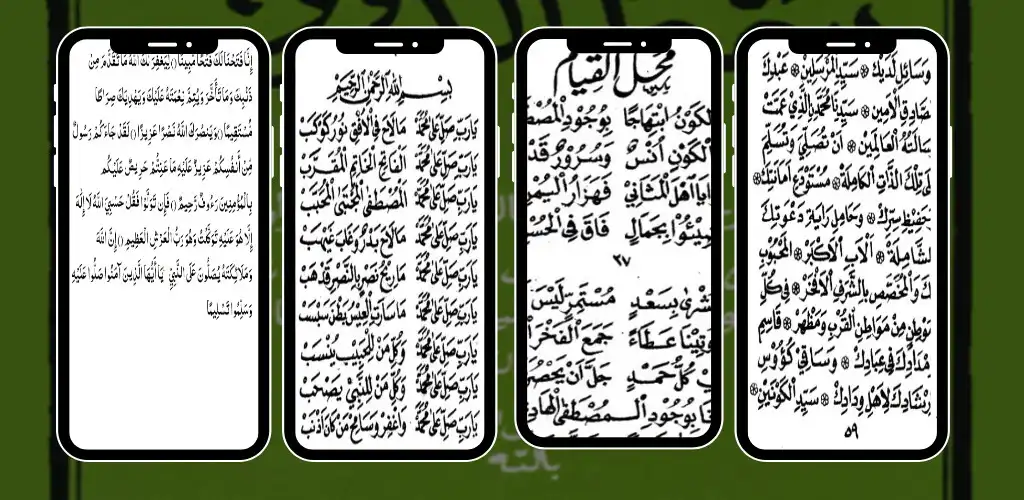 إِنَّا فَتَحْنَا لَكَ فَتْحًا مُبِينًا () لِيَغْفِرَ لَكَ اللهُ مَا تَقَدَّمَ مِنْ
ذَنْبِكَ وَمَا تَأَخَّرَ وَيُتِمَّ نِعْمَتَهُ عَلَيْكَ وَيَهْدِيَكَ صِرَاطًا
مُسْتَقِيمًا () وَيَنْصُرَكَ اللهُ نَصْرًا عَزِيزًا () لَقَدْ جَاءَكُمْ رَسُولٌ
مِنْ أَنْفُسِكُمْ عَزِيزٌ عَلَيْهِ مَا عَنِتُّمْ حَرِيصٌ عَلَيْكُمْ
بِالْمُؤْمِنِينَ رَءُوفٌ رَحِيمٌ () فَإِنْ تَوَلَّوْا فَقُلْ حَسْبِيَ اللهُ لَا إِلٰهَ
إِلَّا هُوَ عَلَيْهِ تَوَكَّلْتُ وَهُوَ رَبُّ الْعَرْشِ الْعَظِيمِ () إِنَّ اللهَ
وَمَلَائِكَتَهُ يُصَلُّونَ عَلَى النَّبِيِّ يَا أَيُّهَا الَّذِينَ آمَنُوا صَلُّوا عَلَيْهِ
وَسَلِّمُوا تَسْلِيمًا
بِسْمِ اللهِ الرَّحْمٰنِ الرَّحِيْمِ
يَارَبِّ صَلِّ عَلَى مُحَمَّدْ مَا لَاحَ فِي الْأُفْقِ نُوْرُ كَوْكَبْ
يَارَبِّ صَلِّ عَلَى مُحَمَّدْ الْفَاتِحِ الْخَاتِمِ الْمُقَرَّبْ
يَارَبِّ صَلِّ عَلَى مُحَمَّدْ الْمُصْطَفَى الْمُجْتَبَى الْمُحَبَّبْ
يَارَبِّ صَلِّ عَلَى مُحَمَّدْ مَا لَاحَ بَدْرٌ وَغَابَ غَيْهَبْ
يَارَبِّ صَلِّ عَلَى مُحَمَّدْ مَا رِيْحُ نَصْرٍ بِالنَّصْرِ قَدْ هَبْ
يَارَبِّ صَلِّ عَلَى مُحَمَّدْ مَا سَارَتِ الْعِيْسُ بَطْنَ سَبْسَبْ
يَارَبِّ صَلِّ عَلَى مُحَمَّدْ وَكُلِّ مَنْ لِلْحَبِيْبِ يُنْسَبْ
يَارَبِّ صَلِّ عَلَى مُحَمَّدْ وَكُلِّ مَنْ لِلنَّبِيِّ يَصْحَبْ
يَارَبِّ صَلِّ عَلَى مُحَمَّدْ وَاغْفِرْ وَسَامِحْ مَنْ كَانَ أَذْنَبْ
مَحَلُّ الْقِيَامِ
لْكَوْنُ ابْتِهَاجًا بِوُجُوْدِ الْمُصْطَ
لْكَوْنِ أُنْسٌ وَسُرُوْرٌ قَدْ
ايَا أَهْلَ الْمَثَانِيْ فَهَزَارُ الْيُمْنِ
ضِيْئُوْا بِجَمَالٍ فَاقَ فِي الْحُسْ
٢٧
بُشْرٰى بِسَعْدٍ مُسْتَمِرٍّ لَيْسَ
وْتِيْنَا عَطَاءً جَمَعَ الْفَخْرَ
يْ كُلُّ حَمْدٍ جَلَّ أَنْ يَحْصُرَ
نَا بِوُجُوْدِ الْمُصْطَفَى الْهَادِ
وَسَائِلِ لَدَيْكَ ۞ سَيِّدِ الْمُرْسَلِيْنَ ۞ عَبْدِكَ
صَادِقِ الْأَمِيْنِ ۞ سَيِّدِنَا مُحَمَّدٍ الَّذِيْ عَمَّتْ
سَالَتُهُ الْعَالَمِيْنَ ۞ أَنْ تُصَلِّيَ وَتُسَلِّمَ
لَى تِلْكَ الذَّاتِ الْكَامِلَةِ ۞ مُسْتَوْدَعِ أَمَانَتِكَ ۞
حَفِيْظِ سِرِّكَ ۞ وَحَامِلِ رَايَةِ دَعْوَتِكَ
لشَّامِلَةِ ۞ الْأَبِ الْأَكْبَرِ ۞ الْمَحْبُوْبِ
كَ وَالْمُخَصَّصِ بِالشَّرَفِ الْأَفْخَرِ ۞ فِيْ كُلِّ
وْطِنٍ مِنْ مَوَاطِنِ الْقُرْبِ وَمَظْهَرٍ ۞ قَاسِمِ
مْدَادِكَ فِيْ عِبَادِكَ ۞ وَسَاقِيْ كُؤُوْسِ
رْشَادِكَ لِأَهْلِ وِدَادِكَ ۞ سَيِّدِ الْكَوْنَيْنِ ۞
٥٩